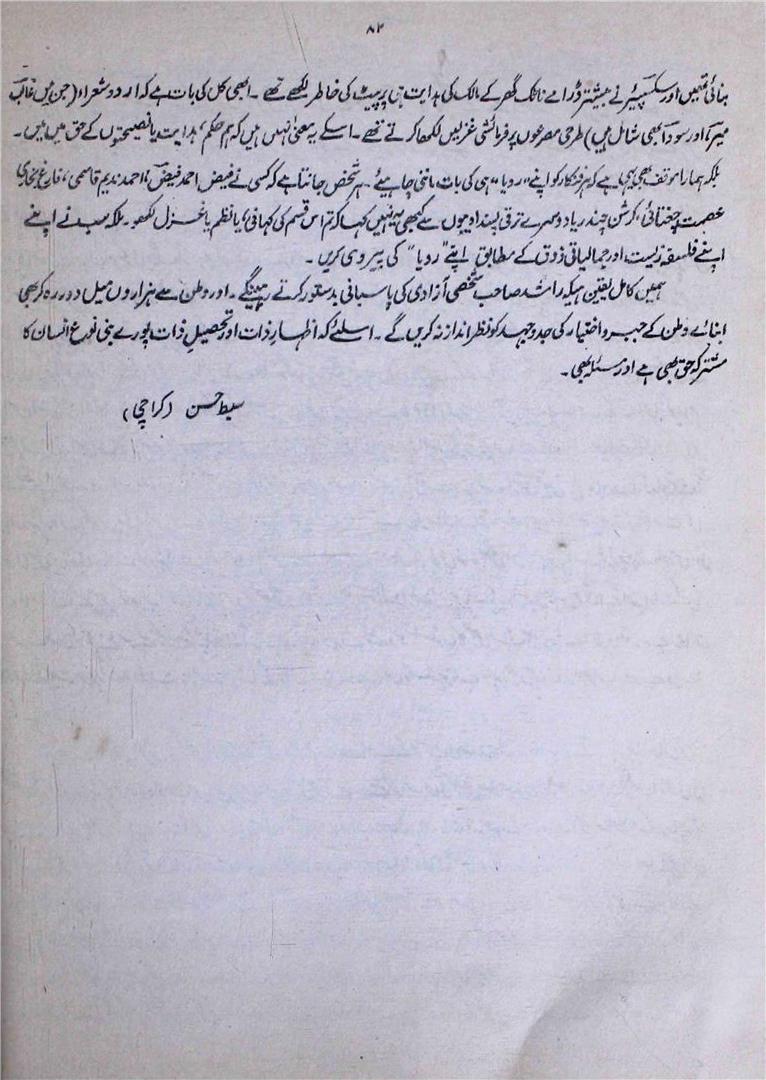 ۸۲
بنائی تھیں اور سکسپیئر نے بیشتر ڈرامے ناٹک گھر کے مالک کی ہدایت ہی پر پیٹ کی خاطر لکھے تھے ۔ ابھی کل کی بات ہے کہ اردو شعراء (جن میں غالب
میر، اور سودا بھی شامل ہیں) طرحی مصرعوں پر فرمائشی غزلیں لکھا کرتے تھے ۔ اسکے یہ معنی نہیں ہیں کہ ہم حکم، ہدایت یا نصیحتوں کے حق میں ہیں ۔
بلکہ ہمارا موقف بھی یہی ہے کہ ہر فنکار کو اپنے "رویا" ہی کی بات ماننی چاہیے ۔ ہر شخص جانتا ہے کہ کسی نے فیض احمد فیض، احمد ندیم قاسمی، فارغ بخاری
عصمت چغتائی، کرشن چندر یا دوسرے ترقی پسند ادیبوں سے کبھی یہ نہیں کہا کہ تم اس قسم کی کہانی، یا نظم یا غزل لکھو ۔ بلکہ سب نے اپنے
اپنے فلسفۂ زیست، اور جمالیاتی ذوق کے مطابق اپنے "رویا" کی پیروی کریں ۔
ہمیں کامل یقین ہیکہ راشد صاحب شخصی آزادی کی پاسبانی بدستور کرتے رہینگے ۔ اور وطن سے ہزاروں میل دور رہ کر بھی
ابنائے وطن کے جبر و اختیار کی جد و جہد کو نظر انداز نہ کریں گے ۔ اسلئے کہ اظہارِ ذات اور تحصیلِ ذات پورے بنی نوع انسان کا
مشترکہ حق بھی ہے اور مسئلہ بھی ۔
سبط حسن (کراچی)